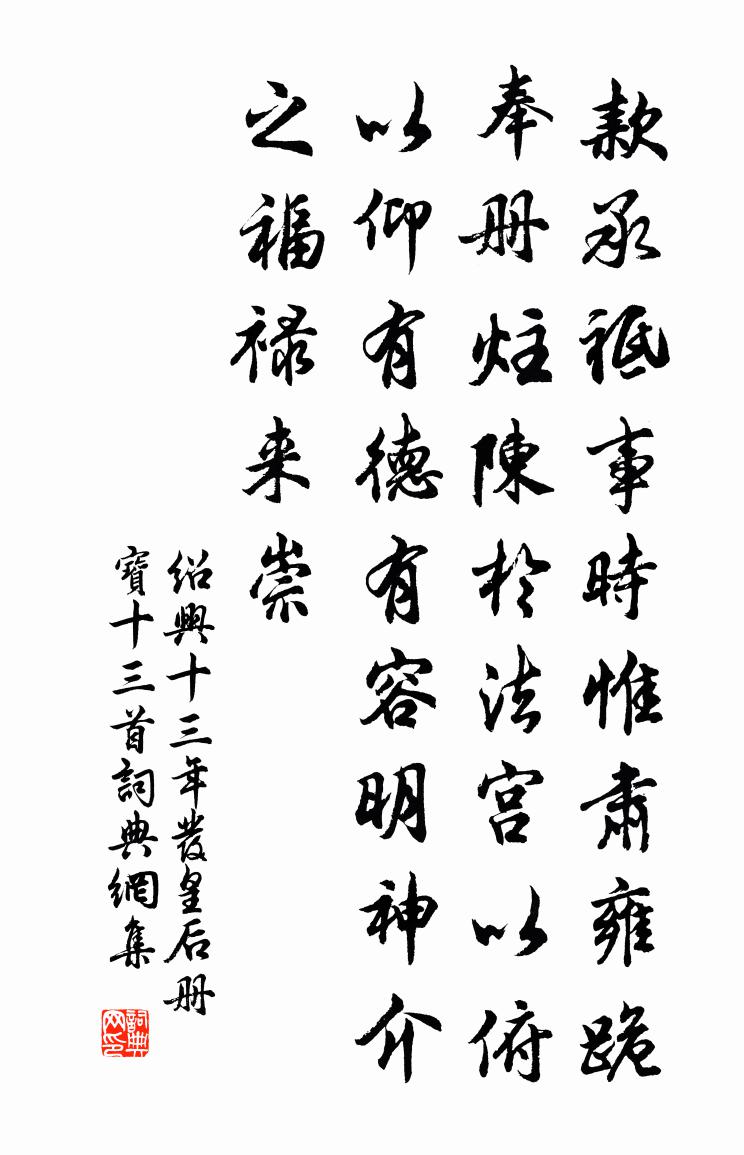 款承祗事時惟肅雍跪
奉册炷陳於法宫以俯
以仰有德有容明神介
之福禄来崇
紹興十三年發皇后册
寶十三首詞典網集
詞典网印